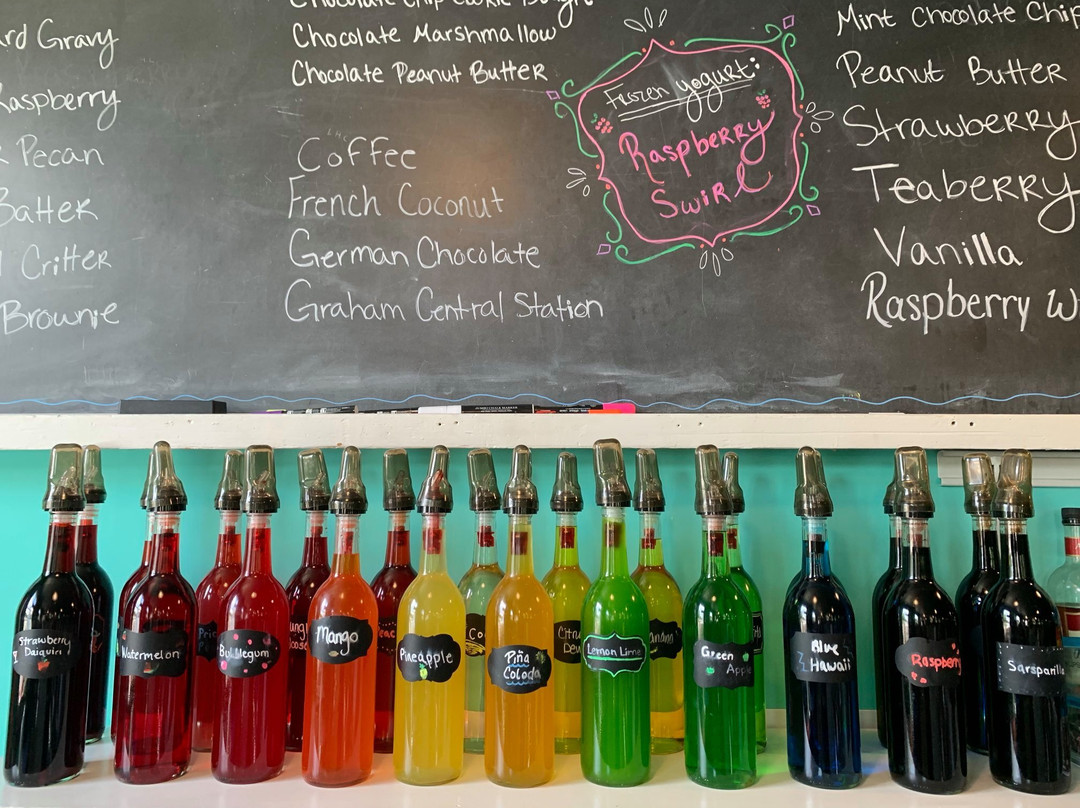 Gravy
Raspberry
Pecan
Critter
Brownie
Chocolate Chip Cookie
Chocolate Marshmallow
Chocolate Peanut Butter
Coffee
French Coconut
German Chocolate
Graham Central Station
Frozen yogurt:
Raspberry
Swirl
Mint Chocolate Chip
Peanut Butter
Strawberry
Teaberry
Vanilla
Raspberry
Strawberry
Daiquiri
Watermelon
Bubblegum
Mango
Pineapple
Piña
Colada
Lemon Lime
Green
Apple
Blue
Hawaii
Raspberry
Sarsparilla